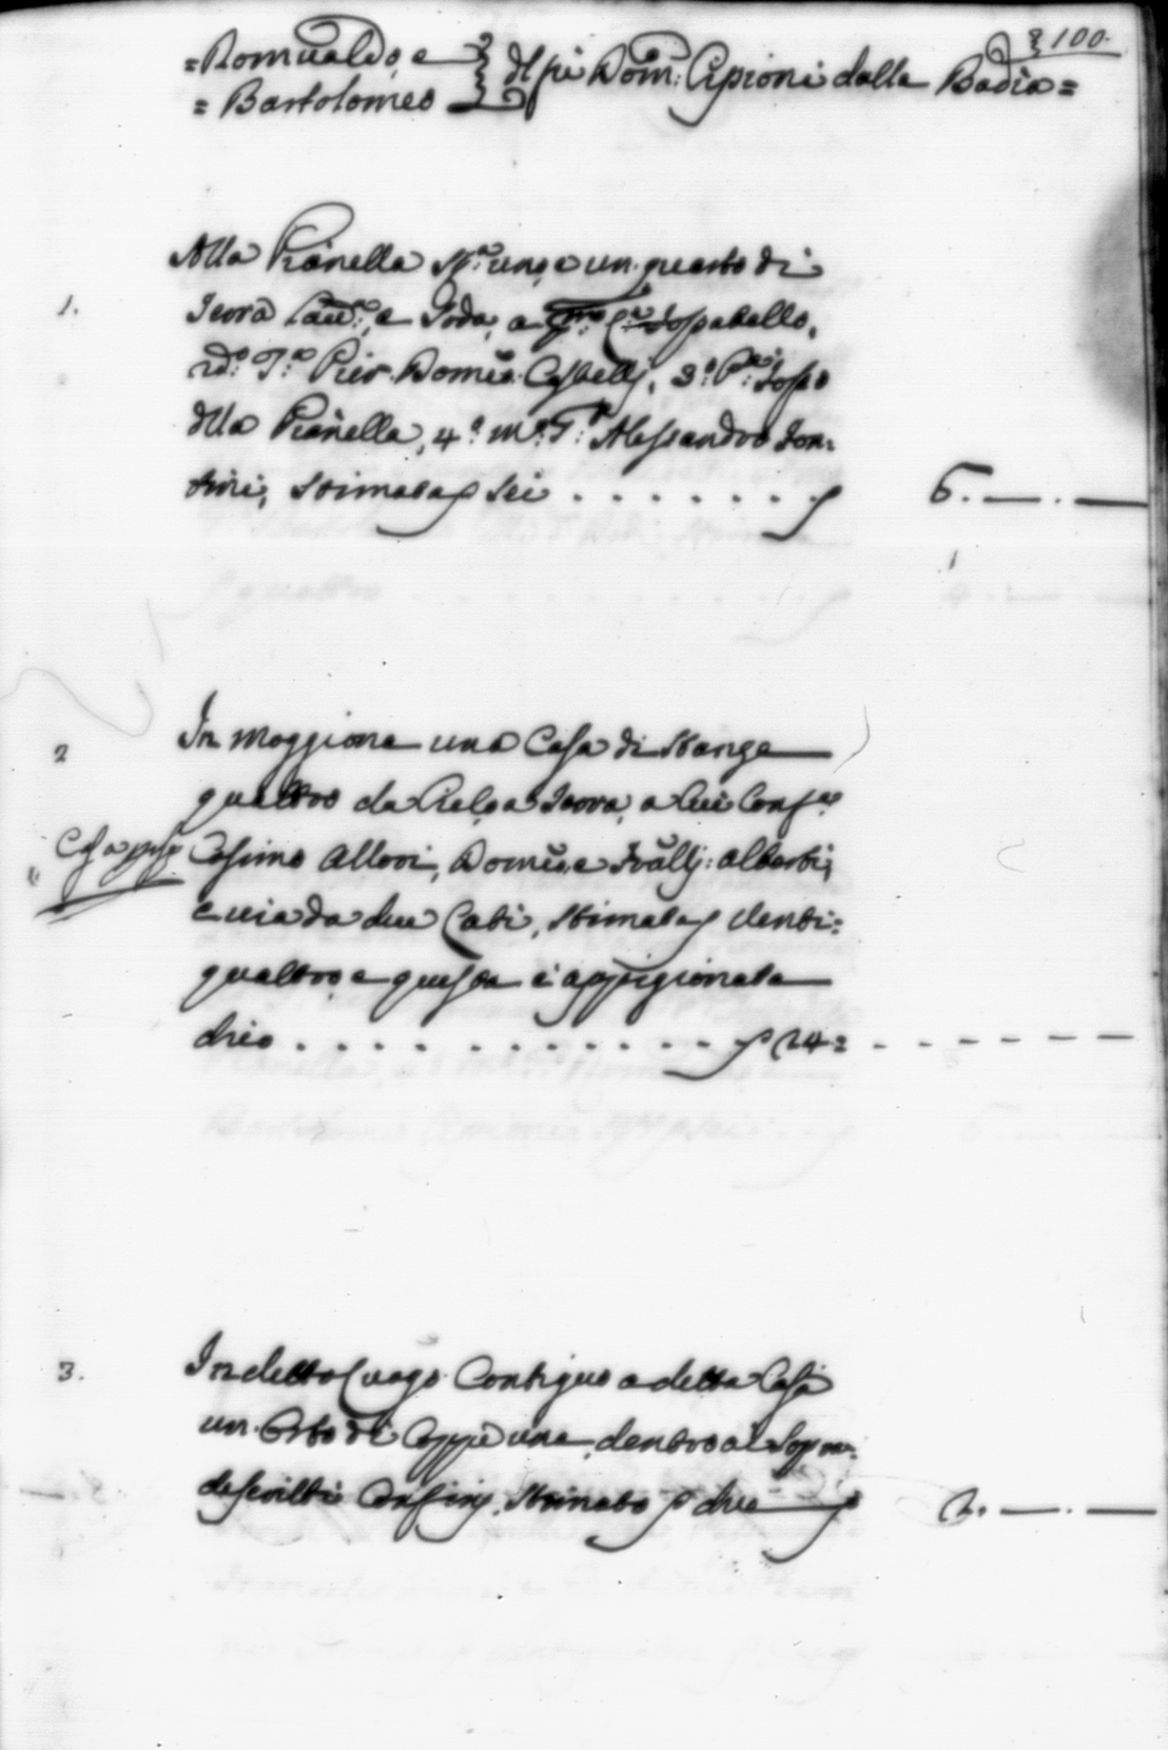 100.
=Romualdo, e
= Bartolomeo } dl qu Dom: Cipioni dalla Badia=
Alla Pianella St.a una, e un quarto di
1. Terra Lau:a, e Soda, a
2.do Pier Domeo Castelli, 3.o
dlla Pianella, 4.o Alessandro Son:
tini, Stimata sei . . . . . . . 6. — . —
2 In Moggiona una Casa di Stanze
quattro da Cielo a Terra, a cui Conf.a
Casa Cosimo Allori, Domeo, e Fralli: Alberti,
e via da due Lati, Stimata Venti:
quattro, e questa è appigionata
. . . . . . . . . . . . 24=
3. In detto Luogo Contiguo a detta Casa
un Orto di Coppe una, dentro ai Sopra:
descritti Confini, Stimato due 2. — . —